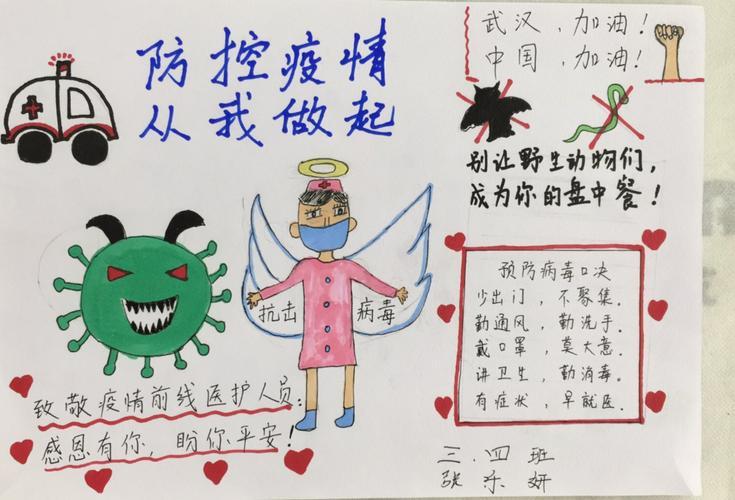 防控疫情
从我做起
武汉，加油！
中国，加油！
别让野生动物们，
成为你的盘中餐！
抗击 病毒
预防病毒口决
少出门，不聚集.
勤通风，勤洗手.
戴口罩，莫大意.
讲卫生，勤消毒.
有症状，早就医.
致敬疫情前线医护人员：
感恩有你，盼你平安！
三.四班
张乐妍